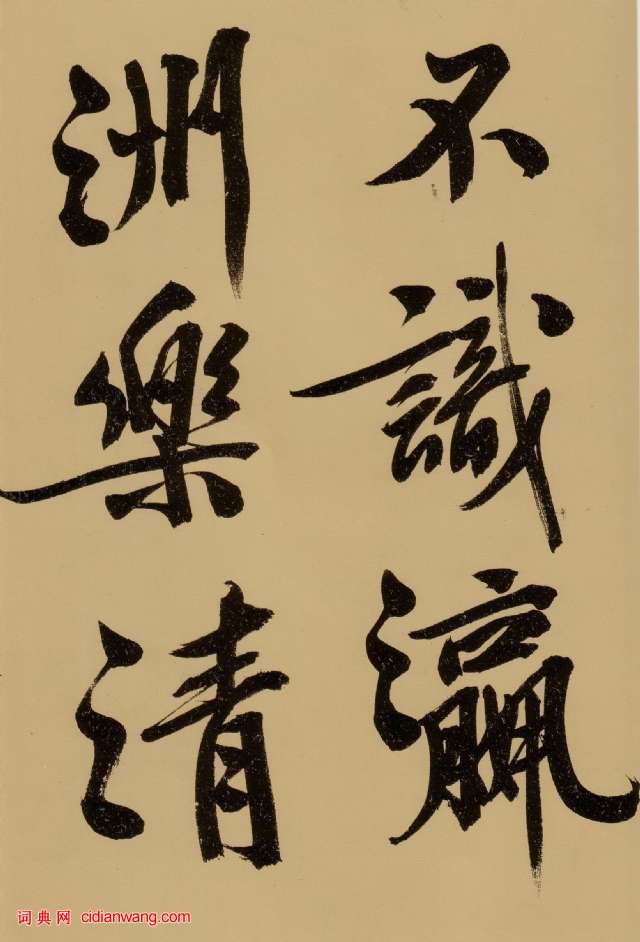 不識瀛
洲樂清
词典网 cidianwang.com